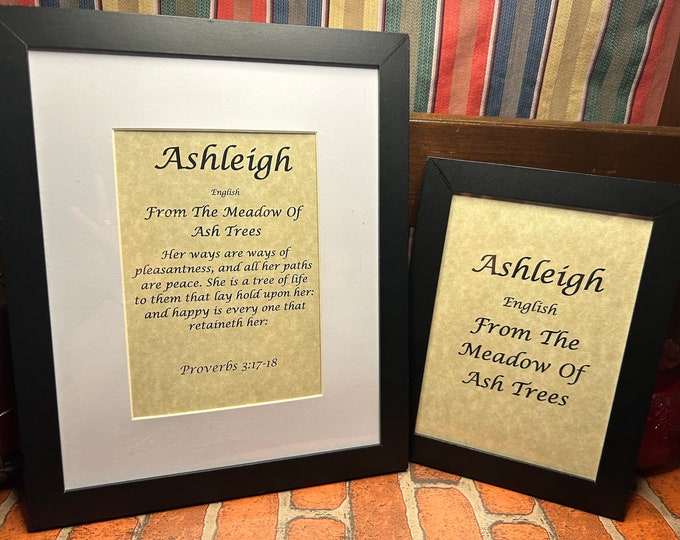 Ashleigh
English
From The Meadow Of
Ash Trees
Her ways are ways of
pleasantness, and all her paths
are peace. She is a tree of life
to them that lay hold upon her:
and happy is every one that
retaineth her:
Proverbs 3:17-18
Ashleigh
English
From The
Meadow Of
Ash Trees